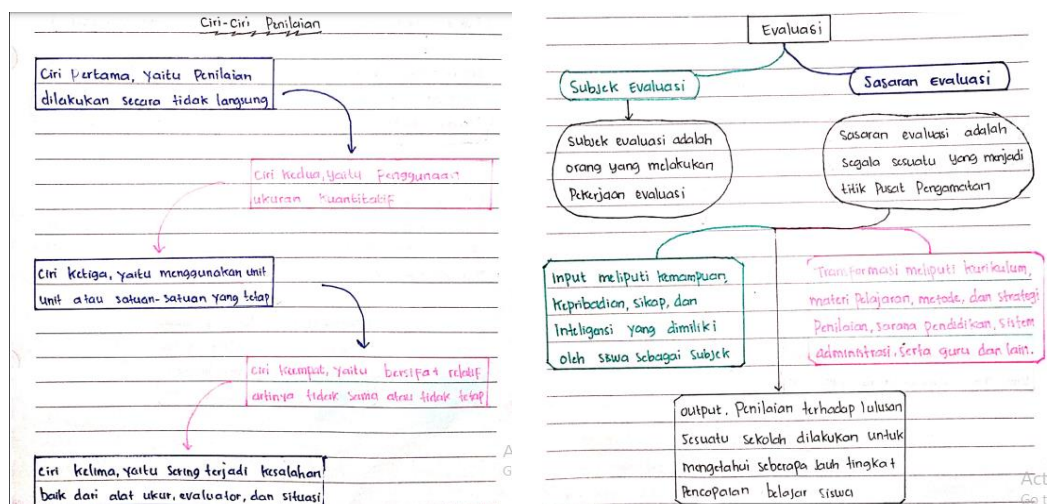 Ciri-Ciri Penilaian
Ciri Pertama, yaitu Penilaian
dilakukan secara tidak langsung
Ciri Kedua, yaitu Penggunaan
ukuran Kuantitatif
Ciri Ketiga, yaitu menggunakan unit
unit atau satuan-satuan yang tetap
Ciri Keempat, yaitu bersifat relatif
artinya tidak sama atau tidak tetap
Ciri Kelima, yaitu sering terjadi kesalahan
baik dari alat ukur, evaluator, dan situasi
Evaluasi
Subjek Evaluasi
Sasaran Evaluasi
Subjek evaluasi adalah
orang yang melakukan
Pekerjaan evaluasi
Sasaran evaluasi adalah
segala sesuatu yang menjadi
titik Pusat Pengamatan
Input meliputi kemampuan,
Kepribadian, sikap, dan
Inteligansi yang dimiliki
oleh siswa sebagai subjek
Transformasi meliputi kurikulum,
materi Pelajaran, metode, dan strategi
Penilaian, sarana pendidikan, sistem
administrasi, serta guru dan lain.
output, Penilaian terhadap lulusan
Sesuatu sekolah dilakukan untuk
mengetahui seberapa Jauh tingkat
Pencapaian belajar siswa